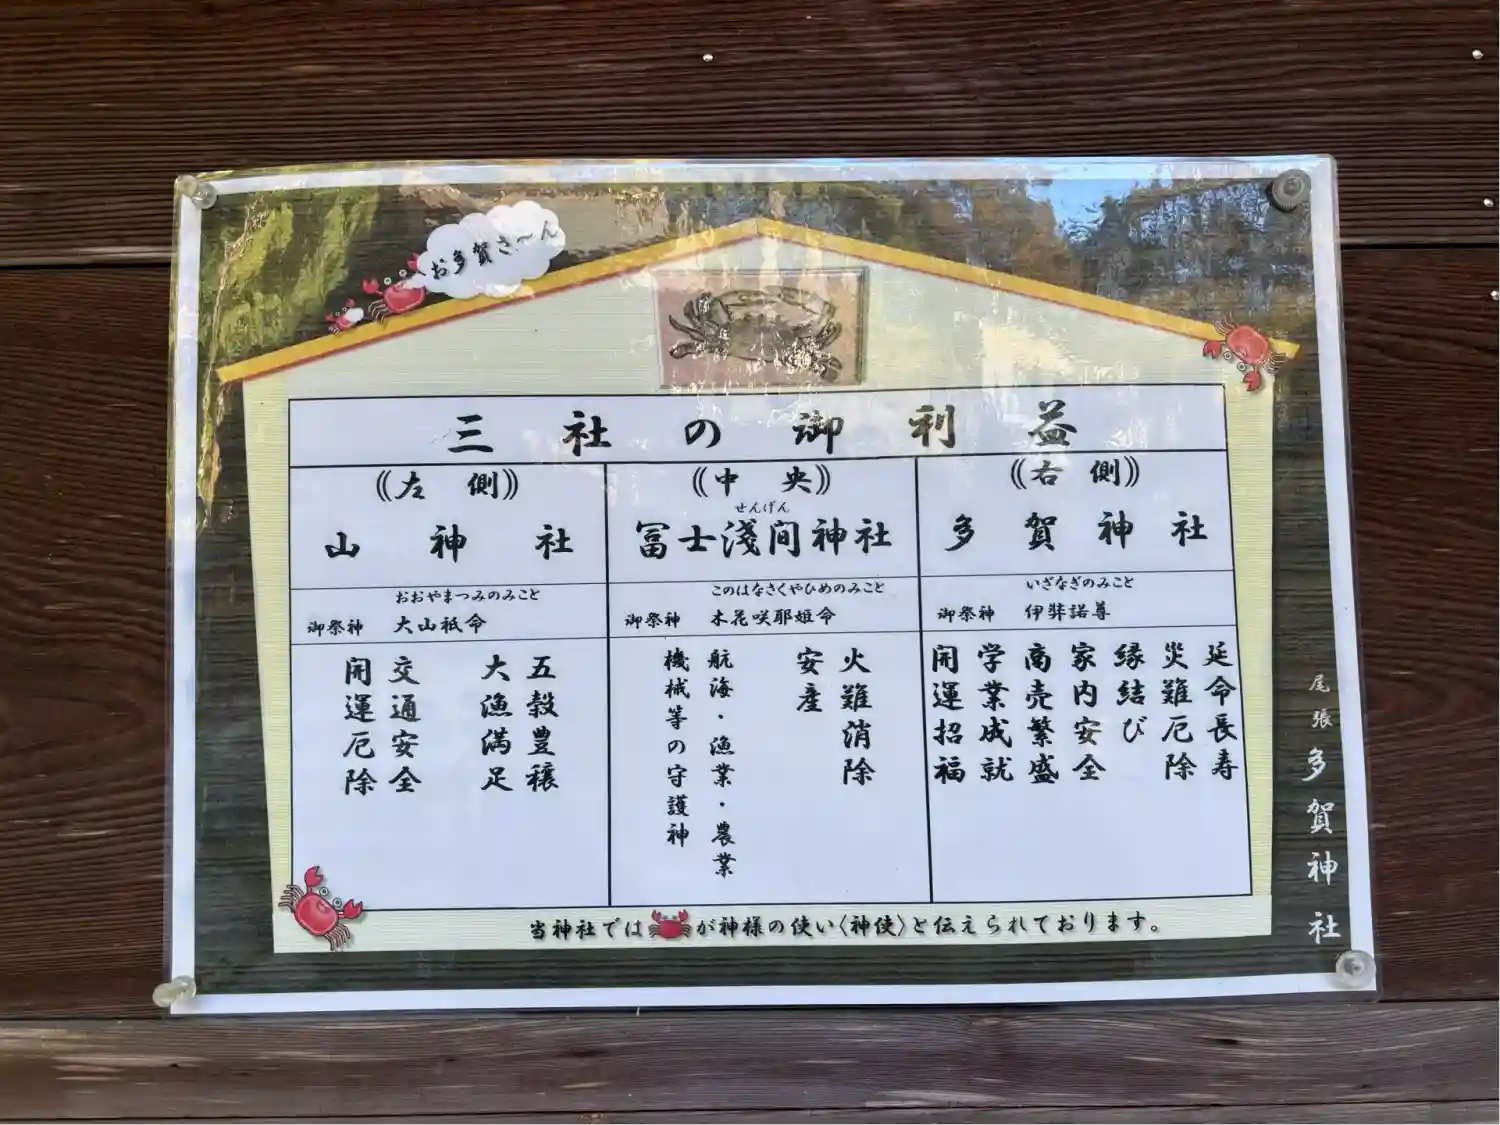 お多賀さ～ん
三社の御利益
《左側》
山神社
おおやまつみのみこと
御祭神 大山祇命
五穀豊穣
大漁満足
交通安全
開運厄除
《中央》
せんげん
冨士淺間神社
このはなさくやひめのみこと
御祭神 木花咲耶姫命
火難消除
安産
航海・漁業・農業
機械等の守護神
《右側》
多賀神社
いざなぎのみこと
御祭神 伊弉諾尊
延命長寿
災難厄除
縁結び
家内安全
商売繁盛
学業成就
開運招福
当神社では が神様の使い〈神使〉と伝えられております。
尾張多賀神社